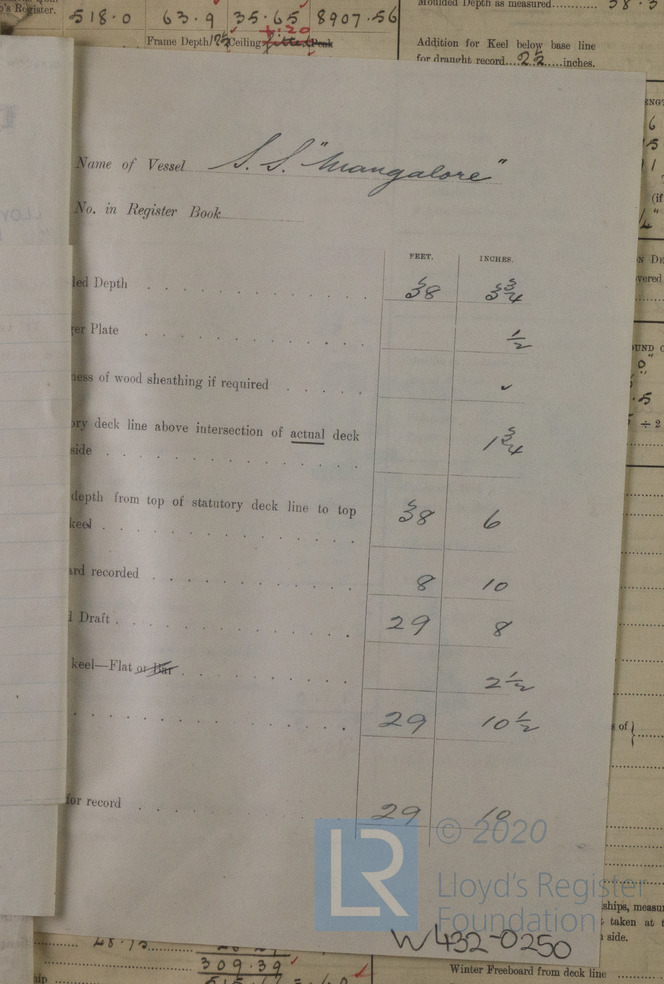 's Register.
518.0 63.9 35.65 8907.56
Moulded Depth as measured
38.3
Frame Depth
Ceiling fitted Peak
Addition for Keel below base line
for draught record...2½......inches.
Name of Vessel S.S. "Mangalore"
No. in Register Book
FEET. INCHES.
led Depth 38 3¾
er Plate ½
ness of wood sheathing if required ✓
ory deck line above intersection of actual deck
side 1¾
depth from top of statutory deck line to top
keel 38 6
ard recorded 8 10
l Draft 29 8
keel—Flat or Bar 2½
29 10½
for record 29 10
© 2020
LR
Lloyd's Register
Foundation
W432-0250
ships, measu
taken at
side.
309.39
Winter Freeboard from deck line